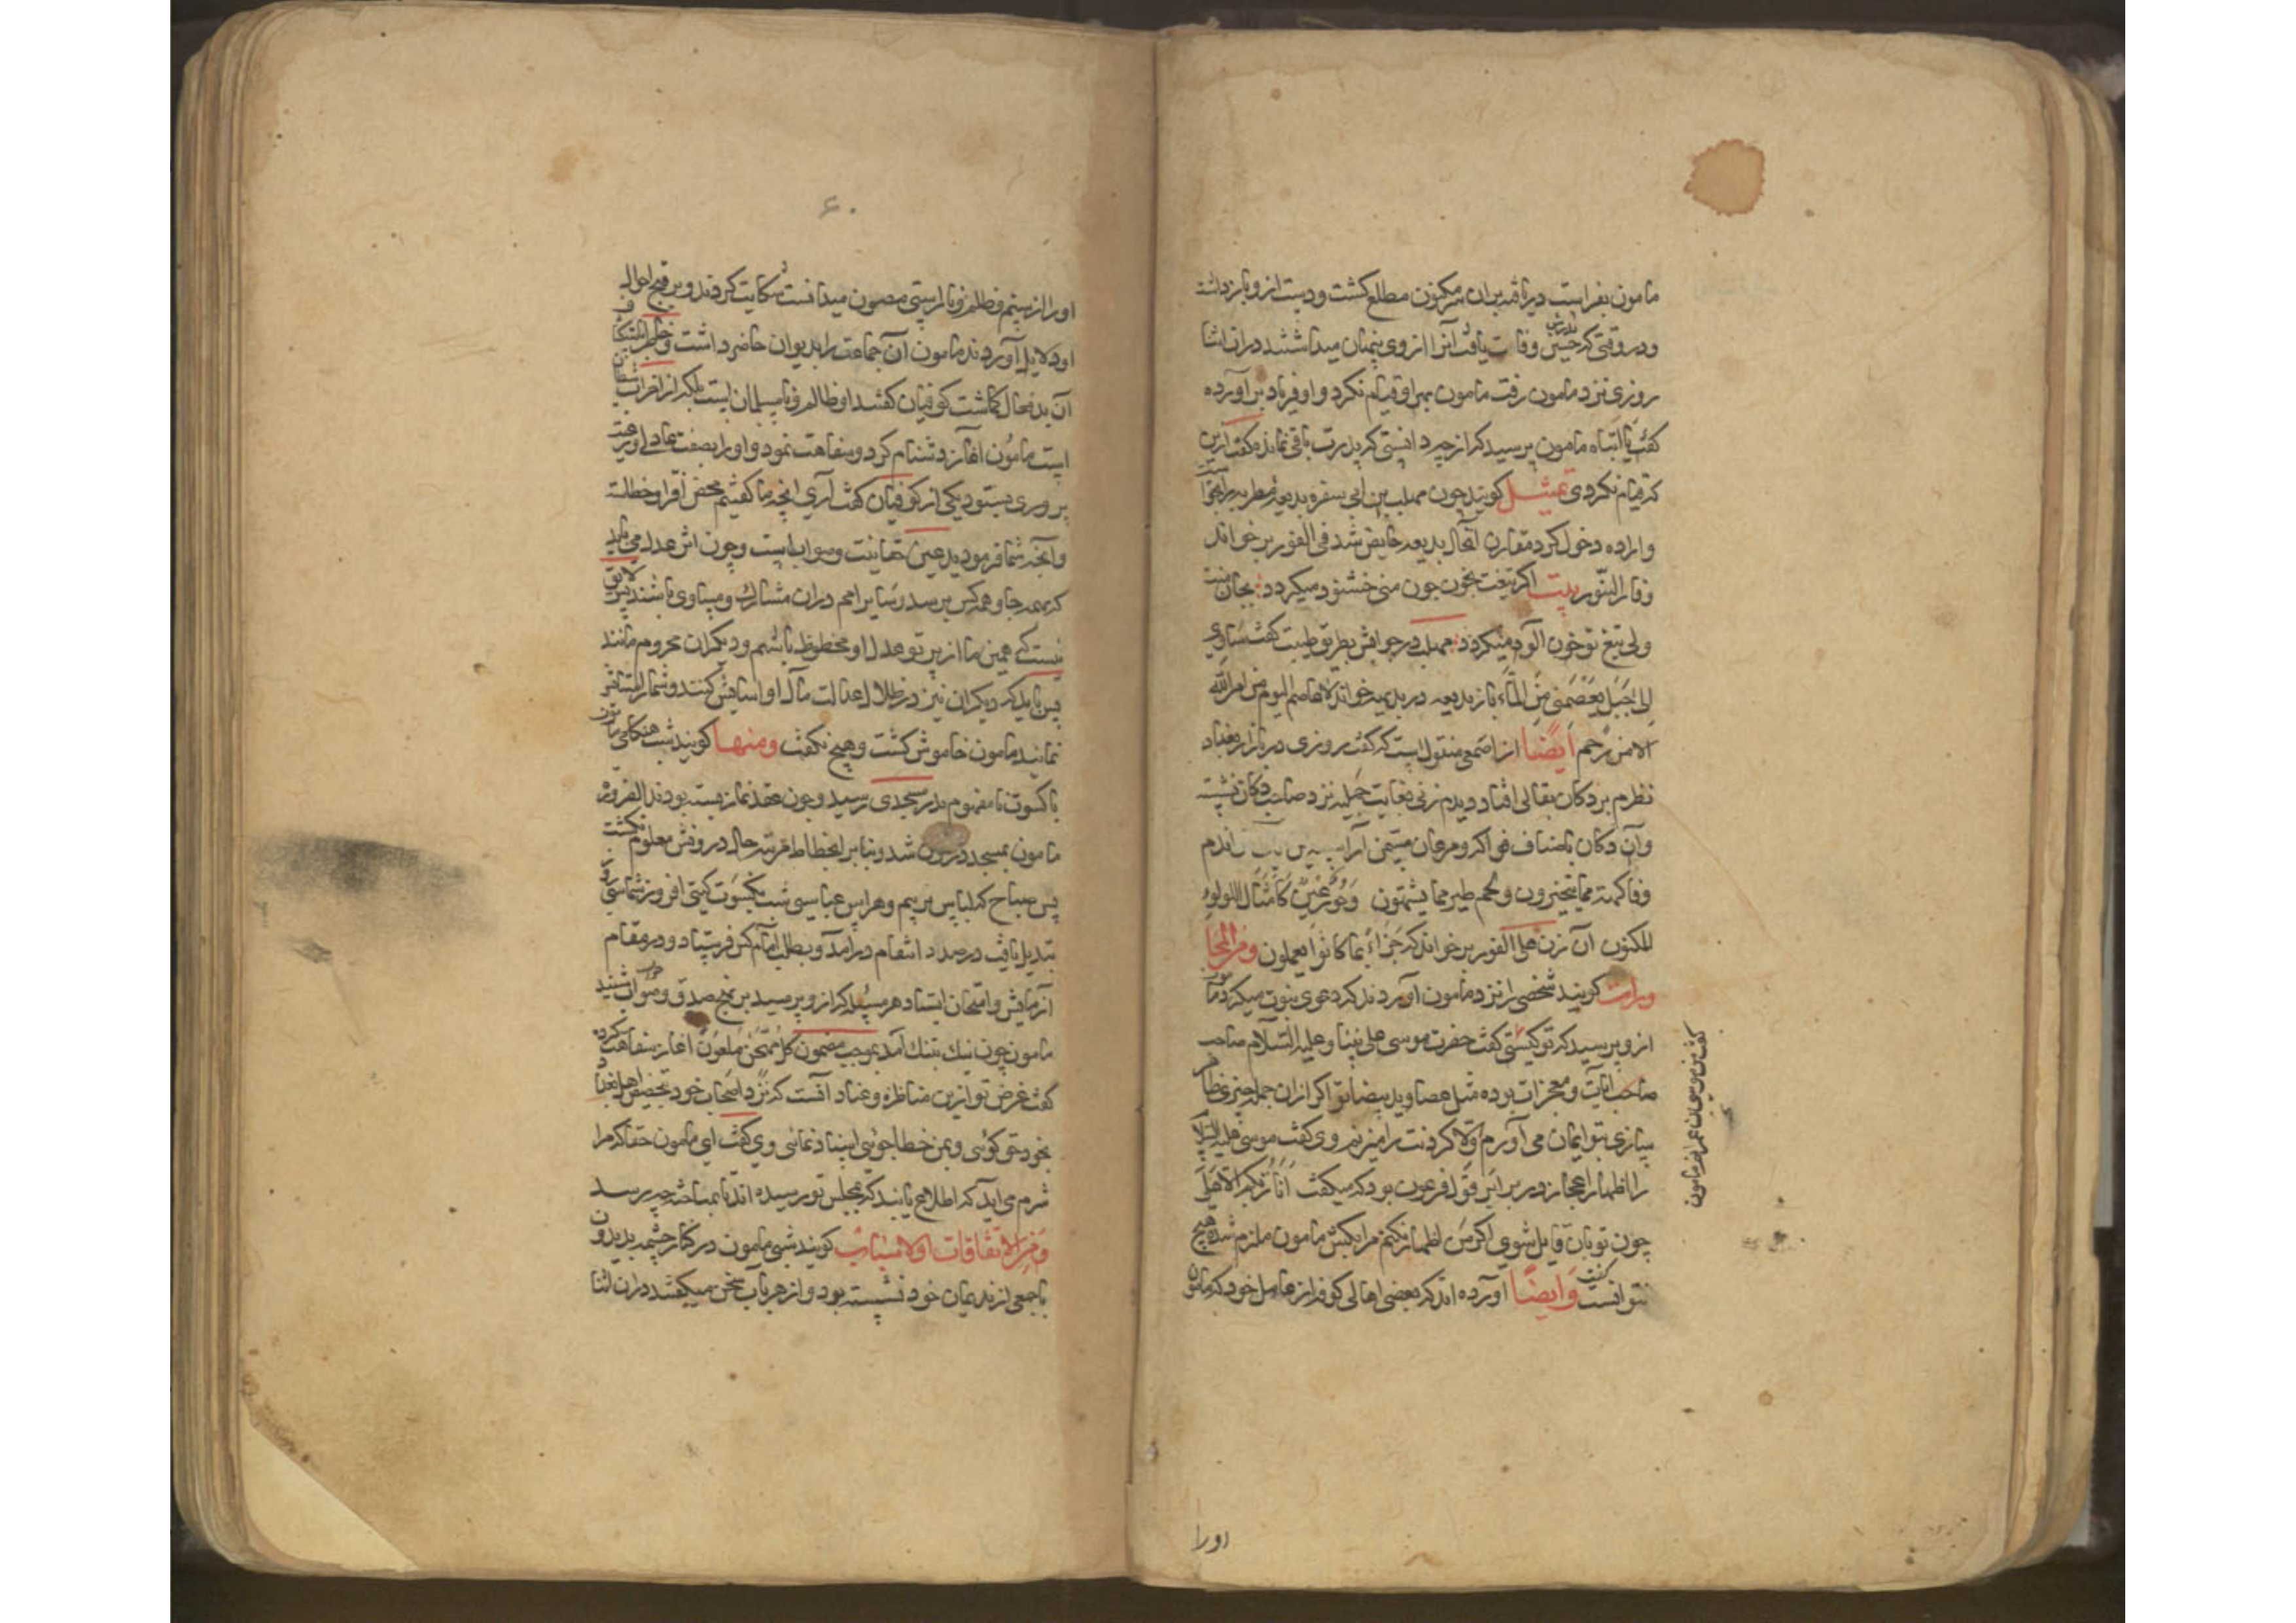 مامون بفراست دریافته بران سر مکنون مطلع کشت و دست ازو بازداشت
و در وقتی که حسین پدرش وفات یافت آنرا از وی پنهان میداشتند دران اثنا
روزی نزد مامون رفت مامون بهر او قیام نکرد و او فریاد بر آورده
کفت یا ابتاه مامون پرسید که از چه دانستی که پدرت باقی نمانده کفت ازین
که قیام نکردی تمثیل کویند چون مهلب بن ابی صفره بدیعه مطربه را
و اراده دخول کرد مقارن آنحال بدیعه حایض شد فی الفور بر خواند
و فار التنور بیت اکر تیغت بخون چون منی خشنود میکردد بجان منت
ولی تیغ تو خون آلود میکردد مهلب در جوابش بطریق طیبت کفت ساوی
الی جبل یعصمنی من الماء باز بدیعه در بدیهه خواند لا عاصم الیوم من امر الله
الا من رحم ایضا از اصمعی منقول است که کفت روزی در بازار بغداد
نظرم بر دکان بقالی افتاد و دیدم زنی بغایت جمیله نزد صاحب دکان نشسته
و آن دکان باصناف فواکه و مرغان مسمن آراسته پس
و فاکهة مما یتخیرون و لحم طیر مما یشتهون و حور عین کامثال اللولو
المکنون آن زن علی الفور بر خواند که جزاء بما کانوا یعملون و من المحا
ورات کویند شخصی را نزد مامون آوردند که دعوی نبوت میکرد مامون
ازو پرسید که تو کیستی کفت حضرت موسی علی نبینا و علیه السلام صاحب
صاحب آیات و معجزات بوده مثل عصا و ید بیضا تو اکر ازان جمله چیزی ظاهر
سازی بتو ایمان می آورم و الا کردنت را میزنم وی کفت موسی علیه السلا
را اظهار اعجاز در برابر قول فرعون بود که میکفت انا ربکم الاعلی
چون تو بآن قایل شوی اکر من اظهار نکنم مرا بکش مامون ملزم شده هیچ
نتوانست کفت و ایضا آورده اند که بعضی اهالی کوفه از عامل خود که مامون
کفت من موسی بن عمرانم مامون
اورا
۶۰
اورا از ستم و ظلم و ناراستی مصون میدانست شکایت کردند و بر قبح احوال
او دلایل آوردند مامون آن جماعت را بدیوان حاضر داشت و
آن بدفعال کماشت کوفیان کفتند او ظالم و نامسلمان است بلکه از
است مامون اغاز دشنام کرد و سفاهت نمود و او را بصفت عدل و رعیت
پروری ستود یکی از کوفیان کفت آری انچه ما کفتیم محض افترا و خطاست
و آنچه شما فرمودید عین حقانیت و صواب است و چون اثر عدل می باید
که بهمه جا و همه کس برسد و سایر امم دران مشارک و مساوی باشند پس لایق
نیست که همین ما از پرتو عدل او محظوظ باشیم و دیکران محروم مانند
پس باید که دیکران نیز در ظلال عدالت مآل او آسایش کنند و شما
نمانید مامون خاموش کشت و هیچ نکفت و منها کویند شب هنکامی مامون
با کسوت نامفهوم بدر مسجدی رسید و چون عقد نماز بسته بودند
مامون بمسجد درون شد و بنابر انحطاط مرتبه حال در وقتش معلوم نکشت
پس صباح که لباس بریهم و هراس عباسی شب بکسوت کیتی افروز شماسی روز
تبدیل یافت در صدد انتقام درآمد و بطلب امام کس فرستاد و در مقام
آزمایش و امتحان ایستاد هر مسئله که ازو پرسید بر نهج صدق و صواب جواب شنید
مامون چون نیک بتنک آمد بموجب مضمون کل ممتحن ملعون اغاز سفاهت کرده
کفت غرض تو ازین مناظره و عناد آنست که نزد اصحاب خود
بخود حق کوئی و بمن خطا جوئی اسناد نمائی وی کفت ای مامون حقا که مرا
شرم می آید که اطلاع یابند که بمجلس تو رسیده ام تا بمباحثه چه رسد
و من الاتفاقات اولا کویند شبی مامون در کنار چشمه بدیدون
با جمعی از ندیمان خود نشسته بود و از هر باب سخن میکفتند دران اثنا